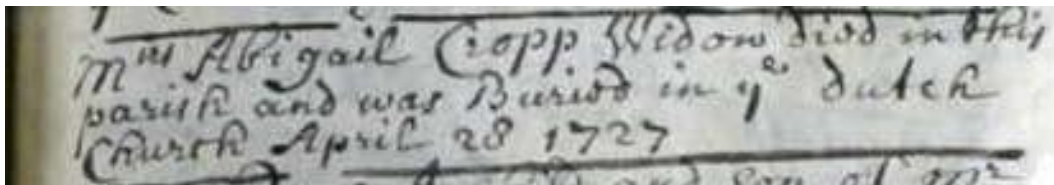 Mrs Abigail Cropp Widow died in this
parish and was Buried in ye dutch
Church April 28 1727
and son of Mr